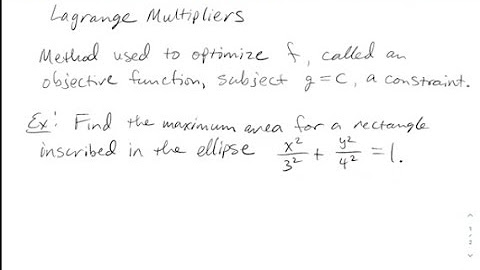 Lagrange Multipliers
Method used to optimize f, called an
objective function, subject g=C, a constraint.
Ex: Find the maximum area for a rectangle
inscribed in the ellipse x²/3² + y²/4² = 1.
1/2